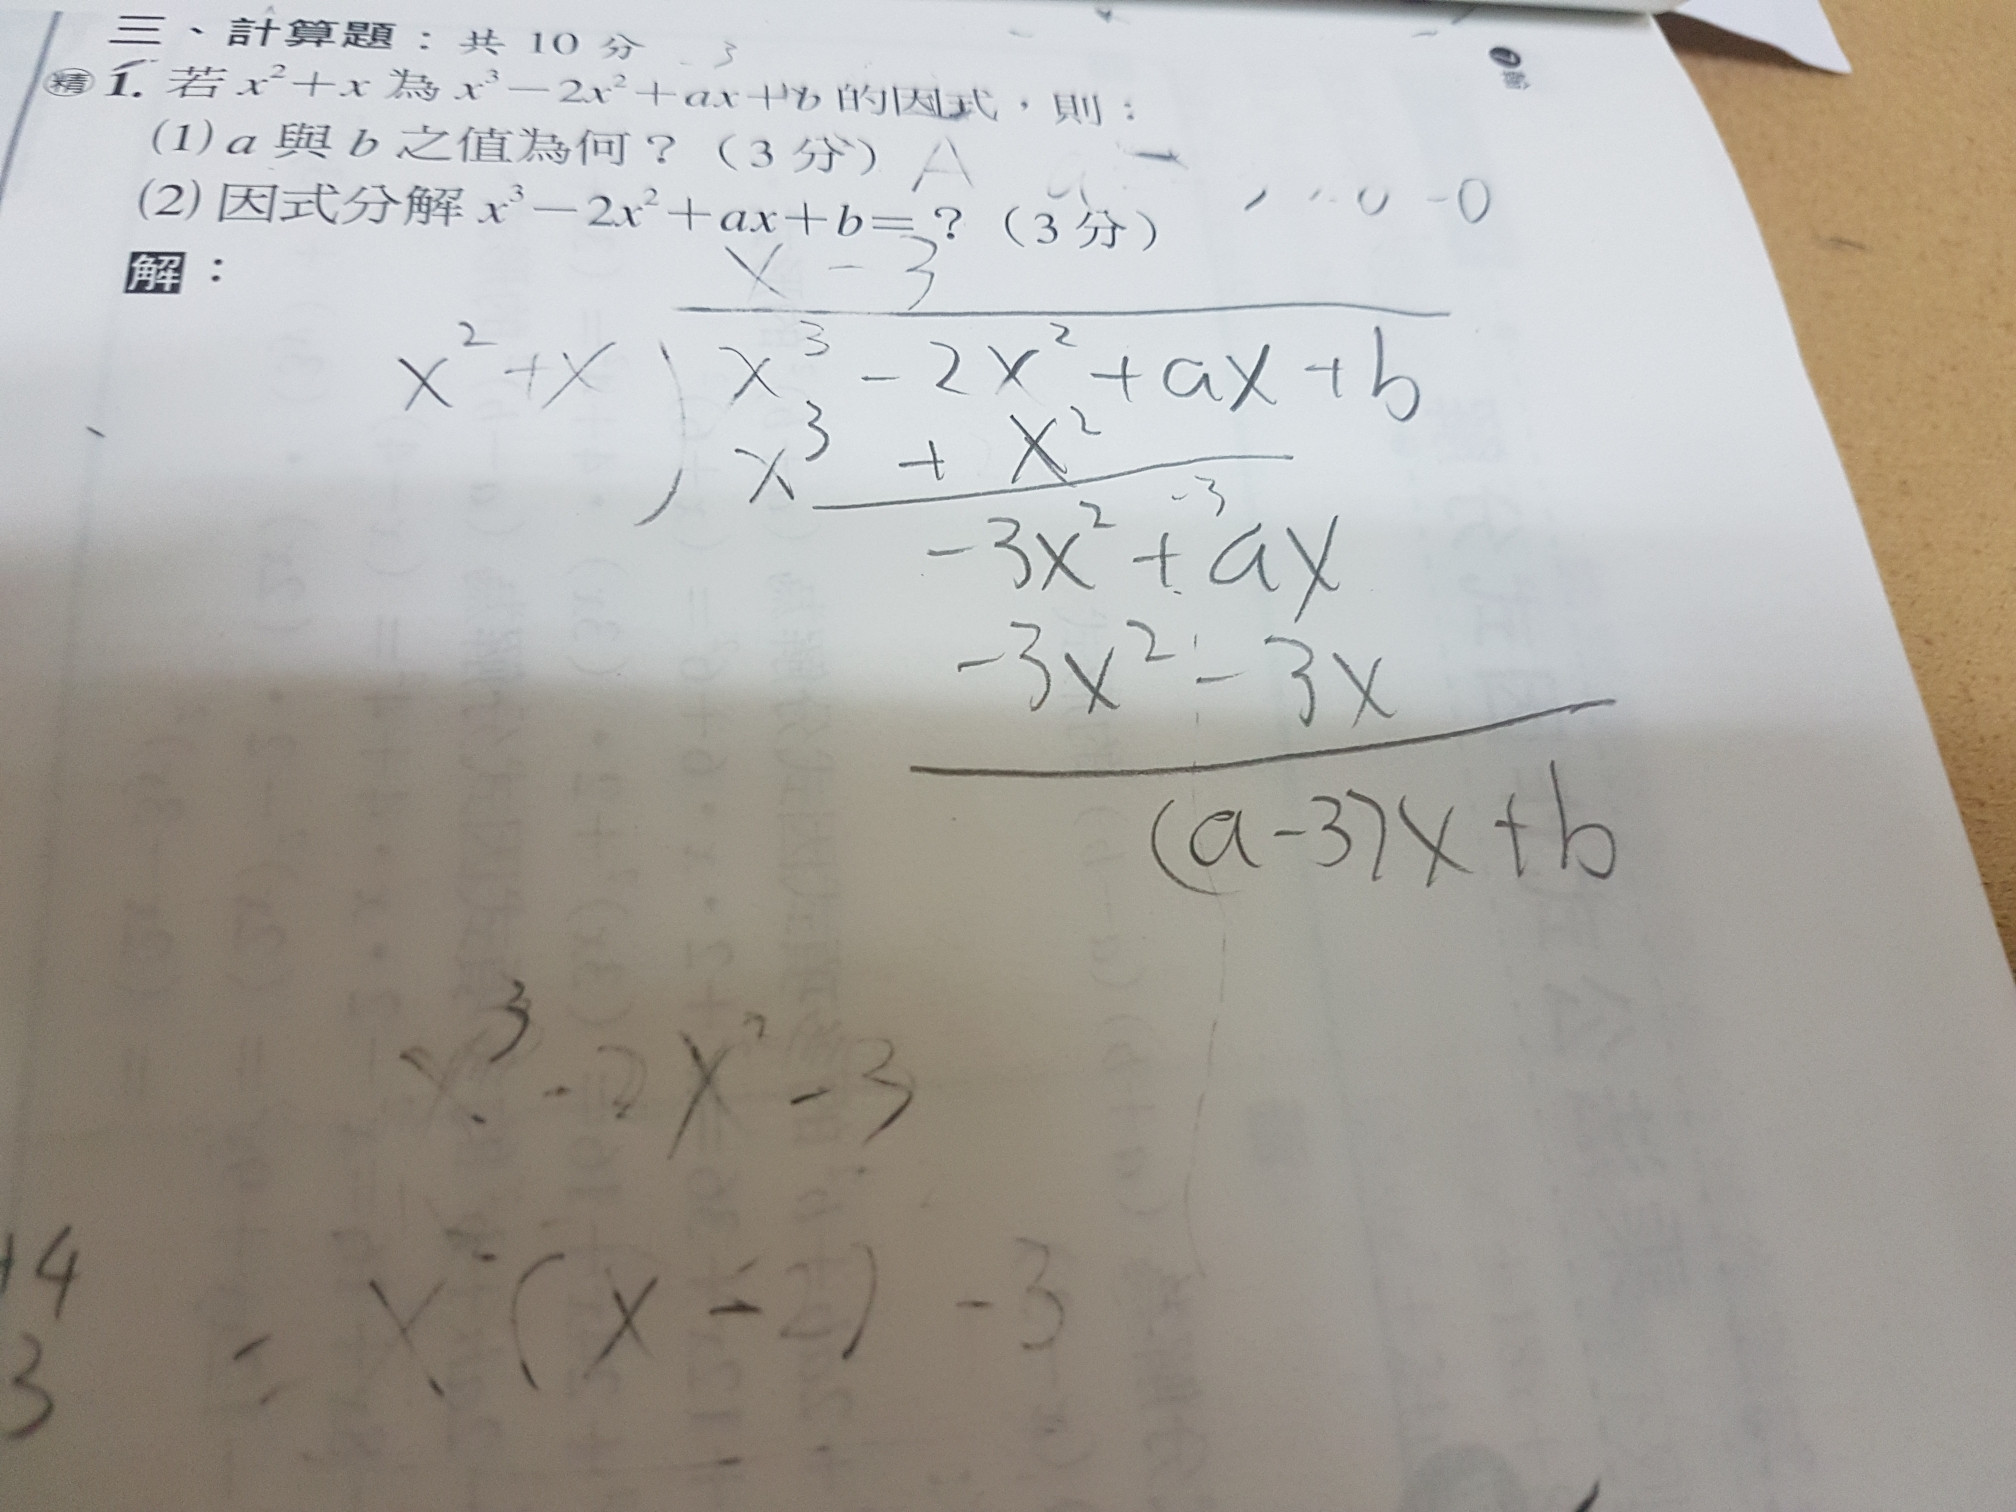 三、計算題：共 10 分
精 1. 若 x²＋x 為 x³－2x²＋ax＋b 的因式，則：
(1) a 與 b 之值為何？（3 分）
(2) 因式分解 x³－2x²＋ax＋b＝？（3 分）
解：
x - 3
x² + x ) x³ - 2x² + ax + b
x³ + x²
-3
-3x² + ax
-3x² - 3x
(a-3)x + b
x³ - 2x² - 3
= x² (x - 2) - 3